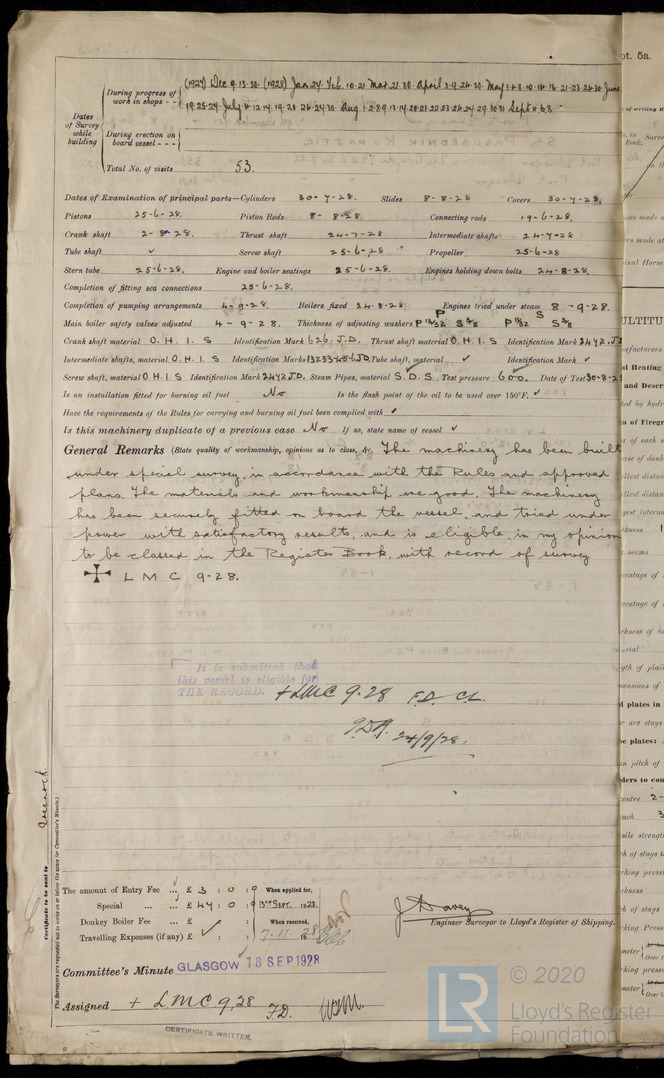 (1927) Dec 9.13.30. (1928) Jan 24. Feb. 10.21 Mar 21.30. April 3.9.26.30. May 3.4.8.10.14.16.21.23.26.30 June
During progress of work in shops - -
19.25.27. July 4.12.14.19.20.26.24.30. Aug 1.2.8.9.13.14.20.21.22.23.24.29.30.31 Sept 4.6.8
Dates of Survey while building
During erection on board vessel - - -
Total No. of visits 53.
Dates of Examination of principal parts—Cylinders 30-7-28. Slides 8-8-28 Covers 30-7-28.
Pistons 25-6-28. Piston Rods 8-8-28. Connecting rods 19-6-28.
Crank shaft 2-8-28. Thrust shaft 24-7-28 Intermediate shafts 24-7-28
Tube shaft ✓ Screw shaft 25-6-28 Propeller 25-6-28
Stern tube 25-6-28. Engine and boiler seatings 25-6-28. Engines holding down bolts 24-8-28.
Completion of fitting sea connections 25-6-28.
Completion of pumping arrangements 4-9-28. Boilers fixed 24-8-28. Engines tried under steam 8-9-28.
Main boiler safety valves adjusted 4-9-28. Thickness of adjusting washers P P 13/32 S 3/8 S P 11/32 S 3/8
Crank shaft material O.H.I.S Identification Mark 626.J.D. Thrust shaft material O.H.I.S Identification Mark 2442.J.D
Intermediate shafts, material O.H.I.S Identification Marks J.D. Tube shaft, material ✓ Identification Mark ✓
Screw shaft, material O.H.I.S Identification Mark 2442 J.D. Steam Pipes, material S.D.S Test pressure 600. Date of Test 30-8-2
Is an installation fitted for burning oil fuel No Is the flash point of the oil to be used over 150°F. ✓
Have the requirements of the Rules for carrying and burning oil fuel been complied with ✓
Is this machinery duplicate of a previous case No If so, state name of vessel ✓
General Remarks (State quality of workmanship, opinions as to class, &c. The machinery has been built
under special survey, in accordance with the Rules and approved
plans. The materials and workmanship are good. The machinery
has been securely fitted on board the vessel, and tried under
power with satisfactory results, and is eligible, in my opinion
to be classed in the Register Book, with record of survey
✠ L M C 9-28.
It is submitted that
this vessel is eligible for
THE RECORD. + LMC 9.28 F.D. CL.
24/9/28.
Certificate to be sent to Greenock.
The Surveyors are requested not to write on or below the space for Committee's Minute.)
The amount of Entry Fee ... £ 3 : 0 : 0 When applied for,
Special ... ... £ 44 : 0 : 13TH SEPT. 1928.
Donkey Boiler Fee ... £ When received,
Travelling Expenses (if any) £ ✓ 7.11.28
J Davey
Engineer Surveyor to Lloyd's Register of Shipping.
Committee's Minute GLASGOW 18 SEP 1928
Assigned + LMC 9,28 F.D.
CERTIFICATE WRITTEN.
LR © 2020
Lloyd's Register
Foundation